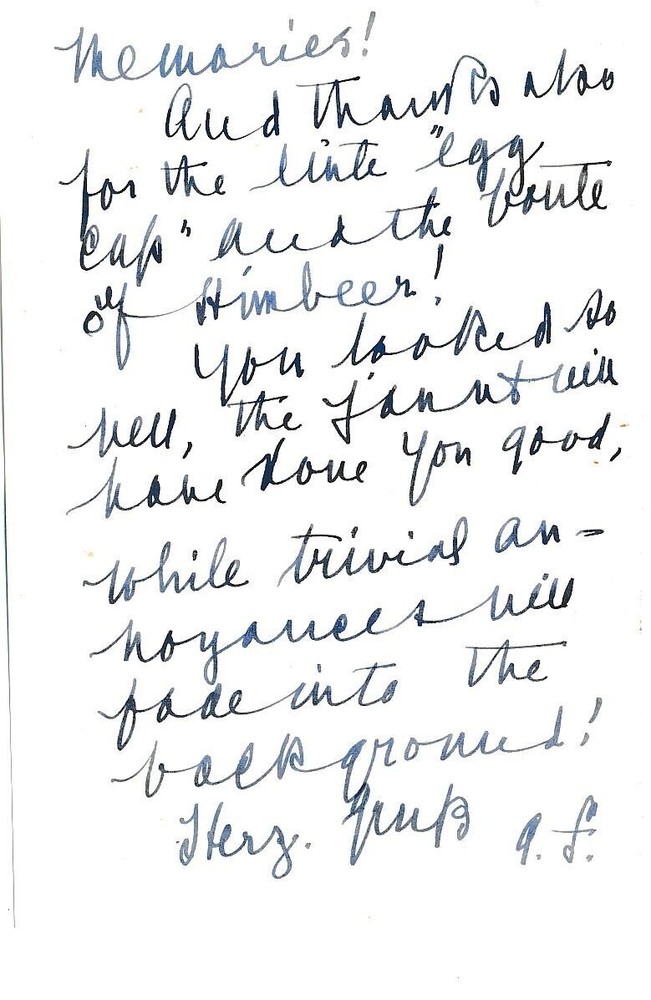 Memories!
And thanks also
for the little "egg
cup" and the bottle
of Himbeer!
You looked so
well, the jaunt will
have done you good,
while trivial an=
noyances will
fade into the
background!
Herz. Gruß